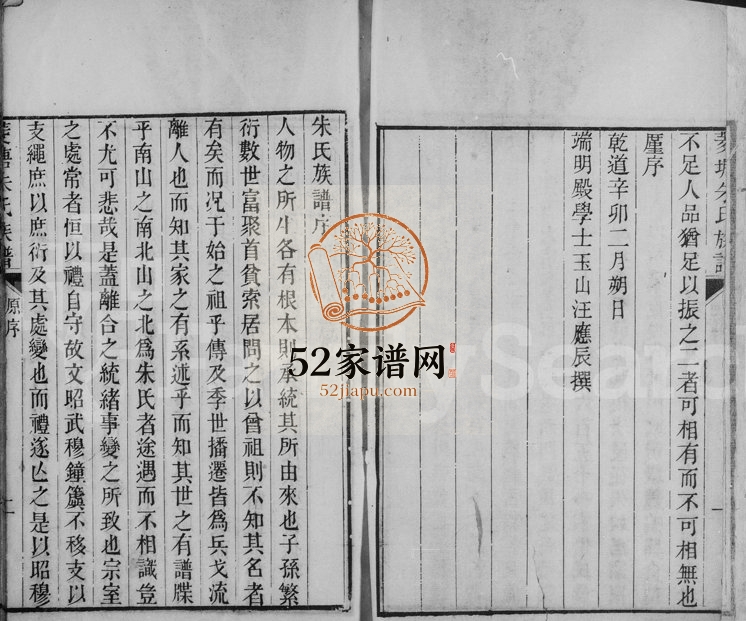 不足人品猶足以振之二者可相有而不可相無也
厪序
乾道辛卯二月朔日
端明殿學士玉山汪應辰撰
朱氏族譜序
人物之所生各有根本則承統其所由來也子孫繁
衍數世富聚首貧索居問之以曾祖則不知其名者
有矣而况于始之祖乎傳及季世播遷皆爲兵戈流
離人也而知其家之有系述乎而知其世之有譜牒
乎南山之南北山之北爲朱氏者途遇而不相識豈
不尤可悲哉是蓋離合之統緒事變之所致也宗室
之處常者恒以禮自守故文昭武穆鐘簴不移支以
支繩庶以庶衍及其處變也而禮遂亾之是以昭穆
朱氏族譜
原序
52家谱网
52jiapu.com